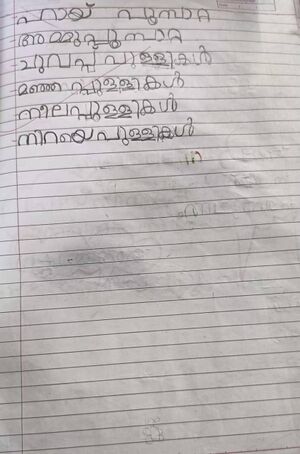 ഹായ് പൂമ്പാറ്റ
അമ്മുപ്പൂമ്പാറ്റ
ചുവപ്പ് പുള്ളികൾ
മഞ്ഞ പ്പുള്ളികൾ
നീലപ്പുള്ളികൾ
നിറയെ പുള്ളികൾ